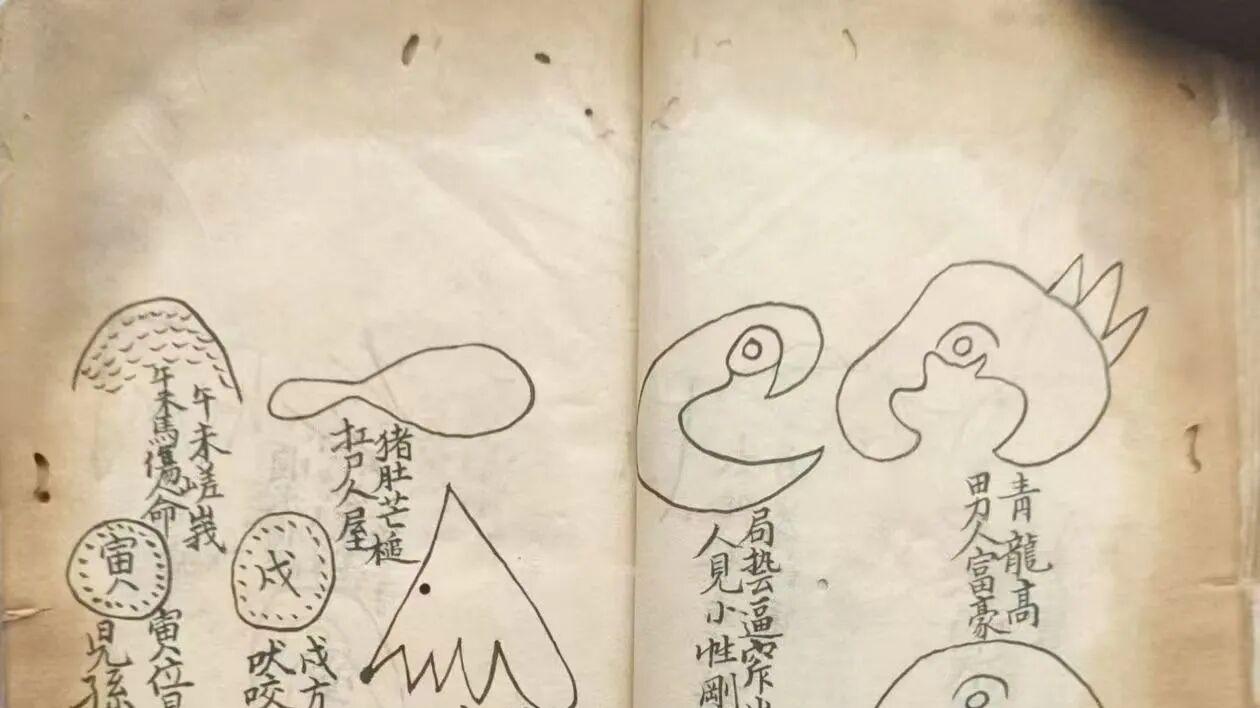 青龍高
男人富豪
局㔟逼窄
人見小性剛
猪肚芒槌
扛尸人屋
午未嵯峩
午未馬傷人命
戌
戌方
吠咬
寅
寅位
兒孫